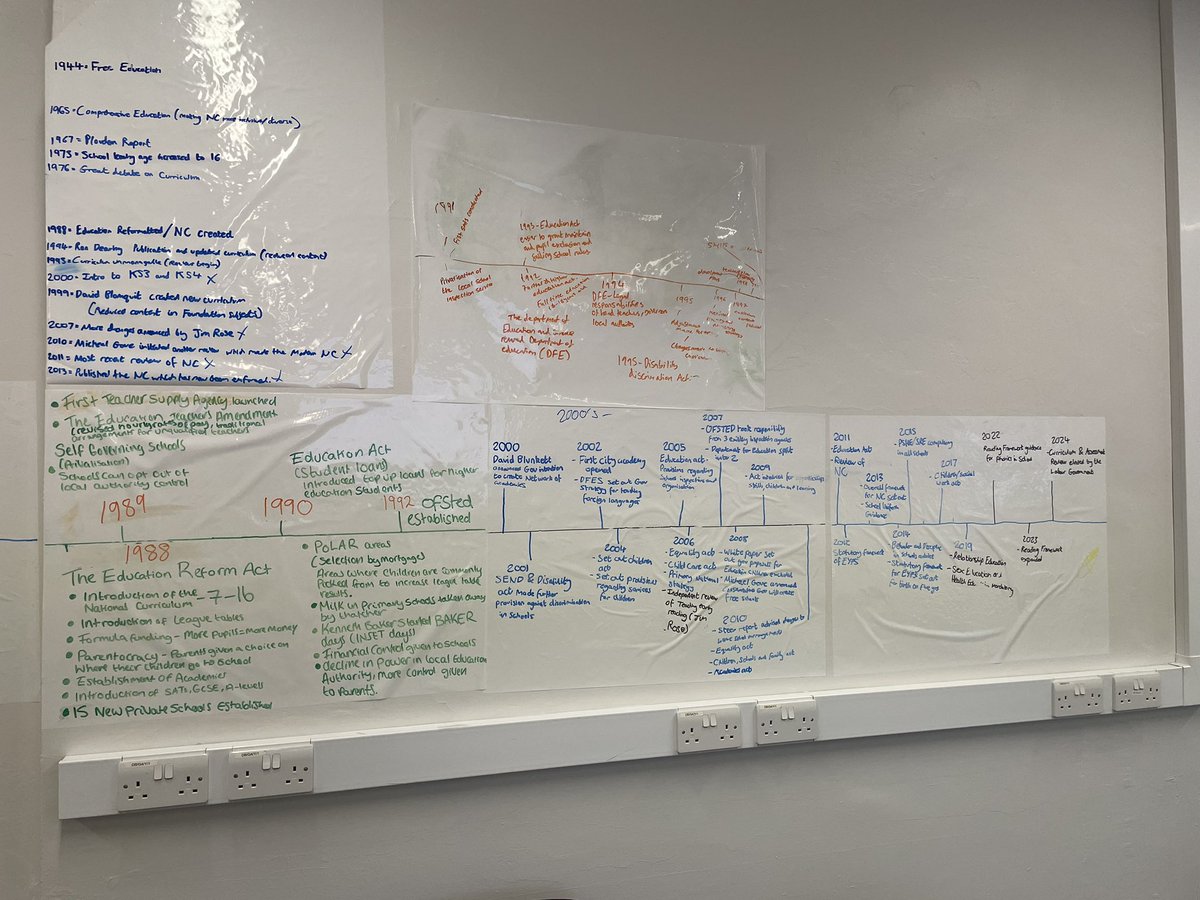 1944 = Free Education
1965 = Comprehensive Education (making NC more inclusive/diverse)
1967 = Plowden Report
1973 = School leaving age increased to 16
1976 = Great debate on Curriculum
1988 = Education Reformatted/NC created
1994 = Ron Dearing Publication and updated curriculum (reduced content)
1993 = Curriculum unmanagable (review begin)
2000 = Intro to KS3 and KS4 X
1999 = David Blunquit created new curriculum
(Reduced content in Foundation subjects)
2007 = More changes announced by Jim Rose X
2010 = Micheal Gove initiated another review which made the Modern NC X
2011 = Most recent review of NC X
2013 = Published the NC which has now been enforced. X
1991
First SATs conducted
Privatisation of
the local school
inspection service
1993 - Education Act
easier to grant maintain
and pupil exclusion and
failing school rules
1992
Full time education
The department of
Education and science
renamed Department of
education (DFE)
1994
DFE - Legal
responsibilities
of head teacher, governors
local authority
1995
1996
1997
1998
1995 - Disability
discrimination Act -
• First Teacher Supply Agency launched
• The Education Teachers Amendment
(revised hourly rates of pay, traditional
arrangements for unqualified teachers
Self Governing Schools
(Privatisation)
• Schools can opt out of
local authority control
1989
Education Act
(Student loans)
Introduced top up loans for higher
education Students
1990
1992 OFSTED
established
1988
The Education Reform Act
• Introduction of the - 7-16
National Curriculum
• Introduction of League tables
• Formula funding - More Pupils = More Money
• Parentocracy - Parents given a choice on
Where their children go to School
• Establishment of Academies
• Introduction of SATs, GCSE, A-levels
• 15 New Private Schools Established
• PoLAR areas
(Selection by mortgages)
Areas where children are commonly
Picked from to increase league table
results.
• Milk in Primary Schools taken away
by thatcher
• Kenneth Baker started BAKER
days (INSET days)
• Financial control given to schools
• decline in Power in Local Education
Authority, more control given
to Parents.
2000's -
2000
David Blunkett
announced Gov intention
to create Network of
academies
2002
- First city academy
opened
- DFES set out Gov
Strategy for teaching
foreign languages
2005
Education act -
Provisions regarding
school inspections and
organisation
2007
- OFSTED took responsibility
from 3 existing inspection agents
- Department for Education split
into 2
2009
- Act
skills children and learning
2001
SEND & Disability
act made further
provision against discrimination
in schools
2004
- Set out children
act
- Set out provisions
regarding services
for children
2006
- Equality act
- Child care act
- Primary national
strategy
- Independent review
of Teaching early
reading (Jim
Rose)
2008
- White Paper set
out gov proposals for
Education
- Michael Gove announced
conservative Gov will create
Free Schools
2010
- Steer report advised changes to
- Equality act
- Children, Schools and Family act
- Academies act
2011
- Education Act
- Review of
NC
2013
- Overall framework
for NC set out
- School Uniform
Guidance
2015
- PSHE/SRE compulsory
in all schools
2017
- Children/Social
work act
2022
Reading Framework guidance
for phonics in School
2024
Curriculum & Assessment
Review elected by the
Labour Government
Statutory framework
of EYFS
2014
- Behavior and Discipline
in Schools advice
- Statutory framework
for EYFS set out
for birth to five yrs
2019
- Relationship Education
- Sex Education and
Health Edu - in mandatory
2023
- Reading Framework
expanded